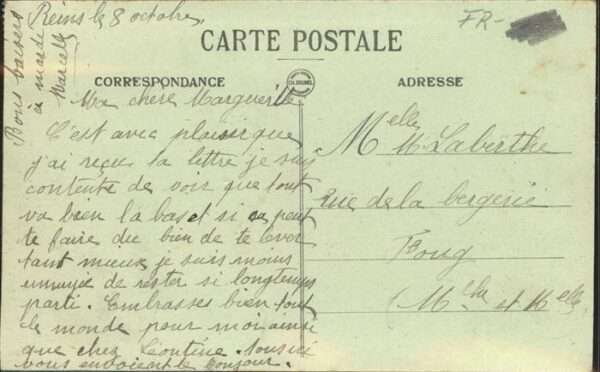 Reims le 8 octobre
FR-
CARTE POSTALE
CORRESPONDANCE
ADRESSE
Ma chère Marguerite
C'est avec plaisir que
j'ai reçu ta lettre je suis
contente de vois que tout
va bien la bas et si sa peut
te faire du bien de te lever
tant mieux je suis moins
ennuyée de rester si longtemps
parti. Embrasses bien tout
le monde pour moi ainsi
que chez Léontine. Tous ici
vous envoient le bonjour.
Bons baisers
a mardi
Marcelle
Melle M. Laberthe
rue de la bergerie
Foug
Mthe et Melle